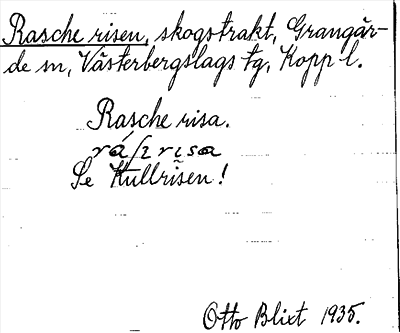 Rasche risen, skogstrakt, Grangär-
de sn, Västerbergslags tg, Kopp l.
Rasche risa.
Se Kullrisen!
Otto Blixt 1935.